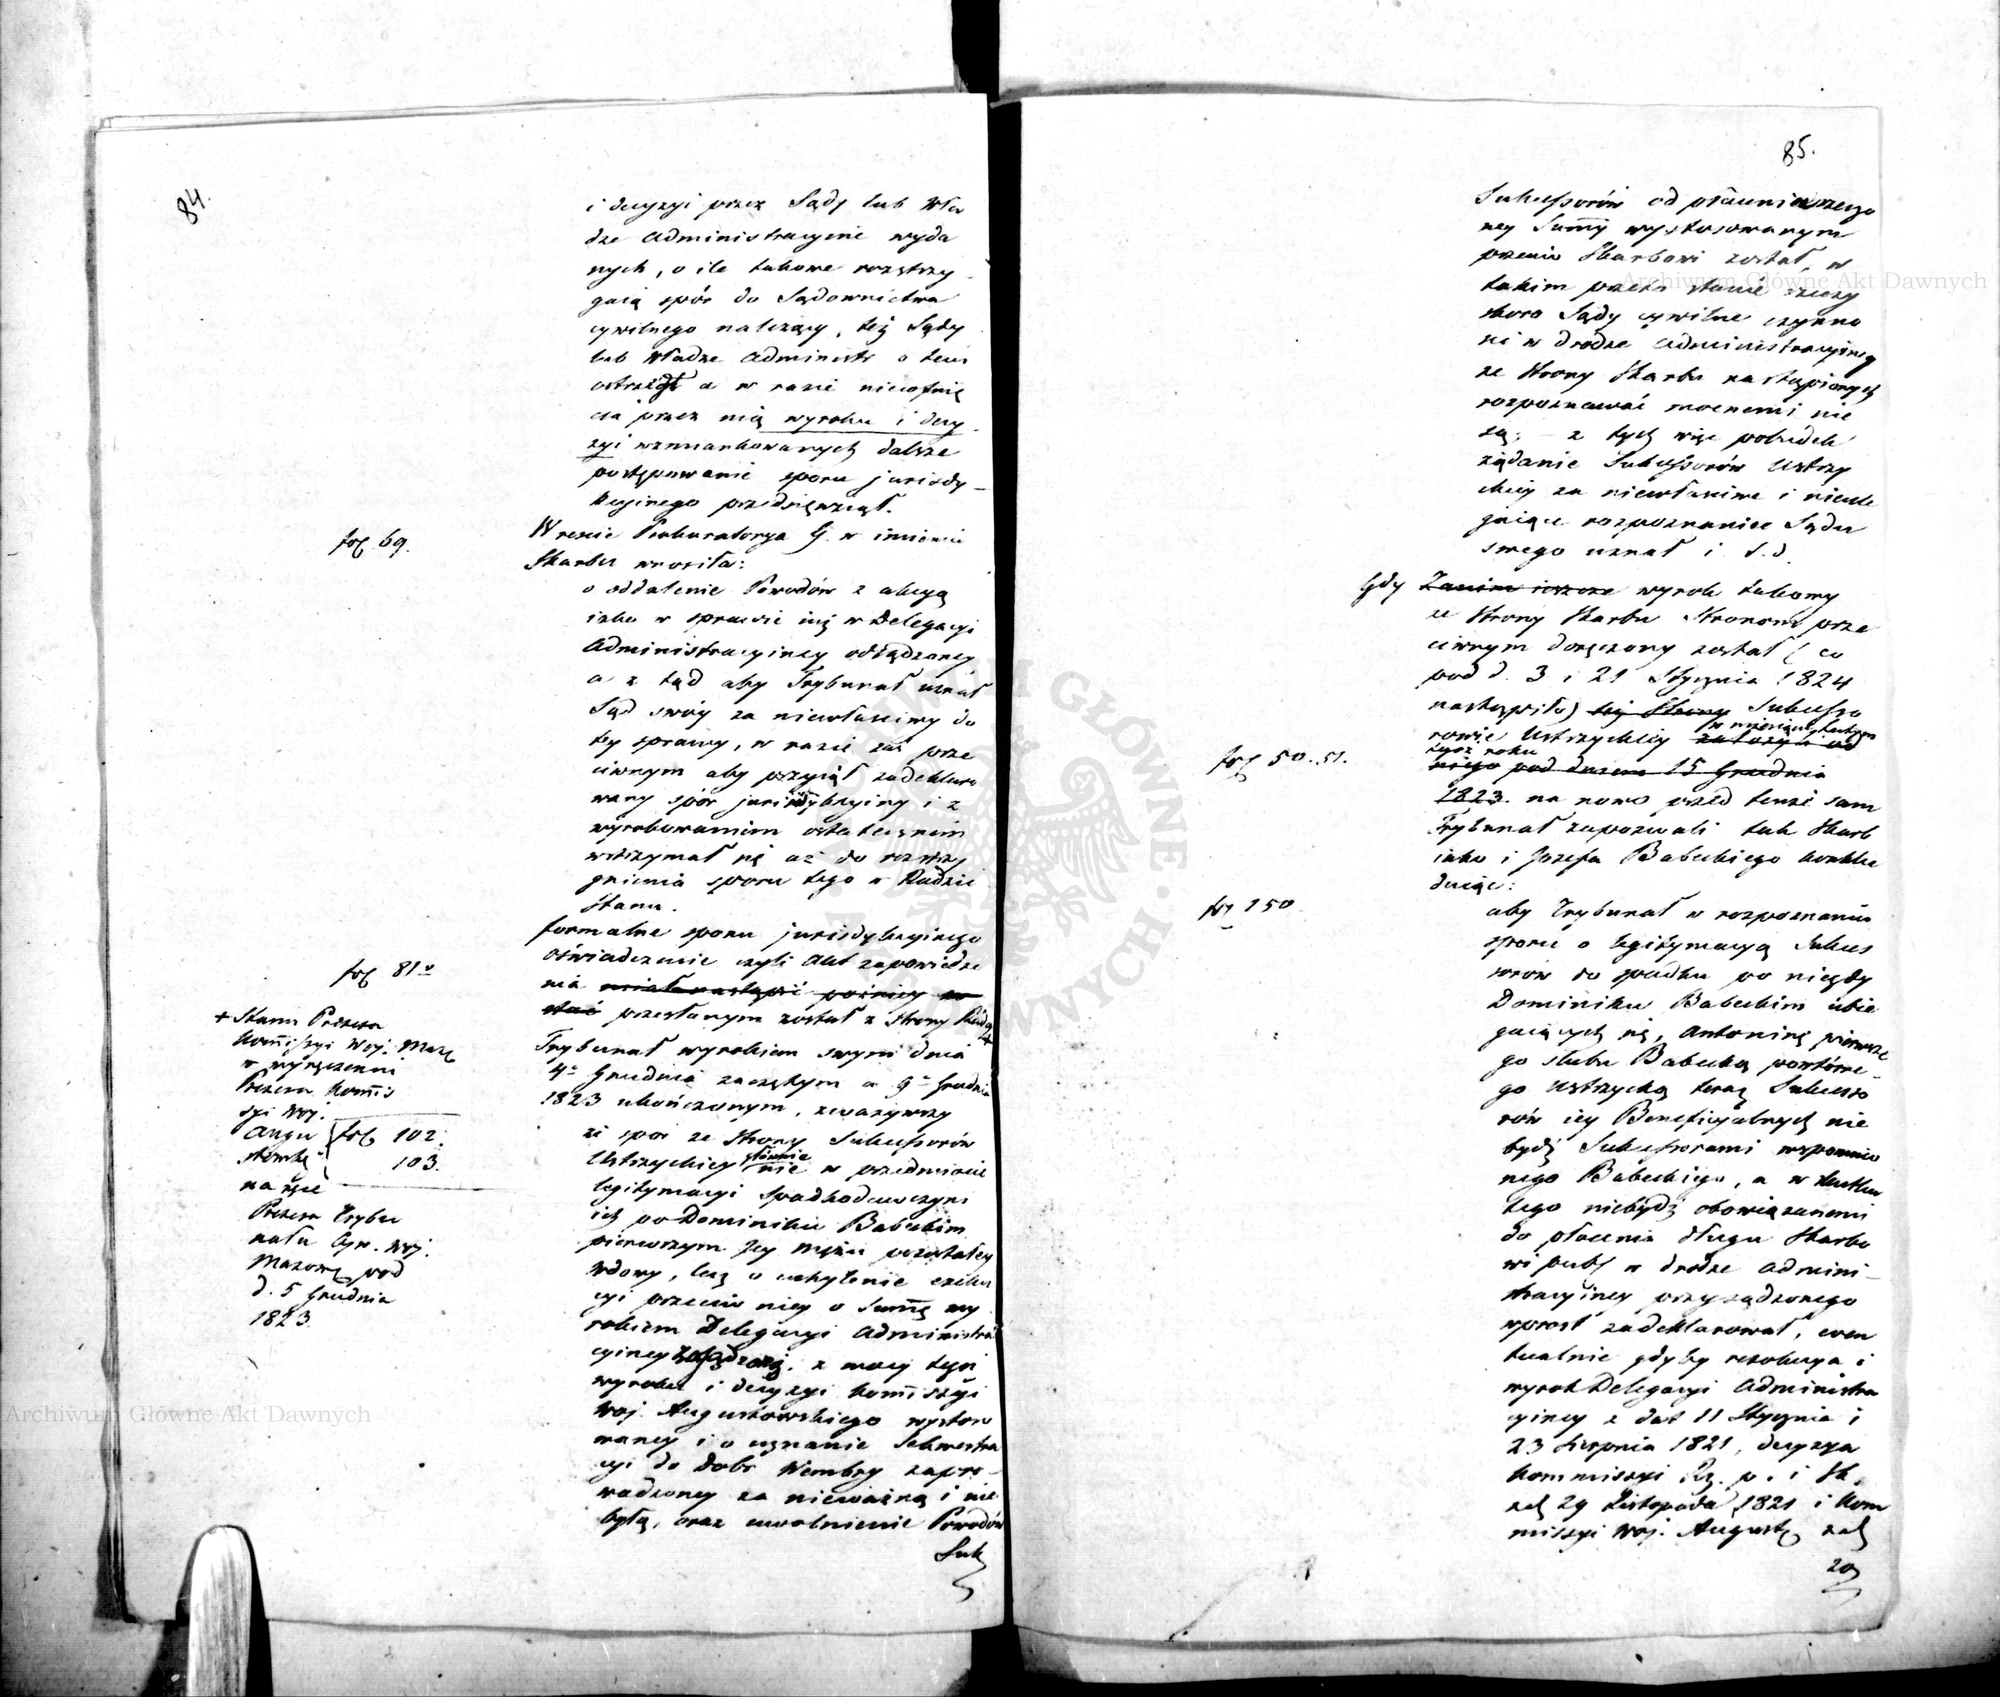 84.
i decyzyi przez Sądy lub Wła
dze Administracyjne wyda
nych, o ile takowe rozstrzy
gaią spór do Sądownictwa
cywilnego należący, też Sądy
lub Władze Administr o tem
ostrzegł a w razie nieco­fnię
cia przez nią wyroku i decy
zyi wzmiankowanych dalsze
postępowanie sporu jurisdy
kcyjnego przedsięwziął.
fol 69.
W resie Prokuratorya G. w imieniu
Skarbu wnosiła:
o oddalenie Powodów z akcyą
iako w sprawie iuż w Delegacyi
Administracyiney osądzoney
a z tąd aby Trybunał uznał
Sąd swóy za niewłaściwy do
tey sprawy, w razie zaś prze
ciwnym aby przyiął zadeklaro
wany spór jurisdykcyiny i z
wyrokowaniem ostatecznem
wstrzymał się aż do rozstrzy
gnienia sporu tego w Radzie
Stanu.
formalne sporu jurisdykcyinego
fol 81
oświadczenie czyli Akt zapowiedze
nia miało nastąpić później
przesłanym został z strony Rady
+ Stanu Prezesa
Kommissyi Woj. Maz
w wyręczeniu
Prezesa Kommis
syi Woj.
Augu
stowskiey
fol 102.
103.
na ręce
Prezesa Trybu
nału Cyw. Woj.
Mazow pod
d. 5 Grudnia
1823.
Trybunał wyrokiem swym dnia
4 Grudnia zaczętym a 9 Grudnia
1823 ukończonym, zważywszy
że spór ze strony Sukcessorów
Ustrzyckiey głównie nie w przedmiocie
legitymacyi spadkodawczyni
ich po Dominiku Babeckim
pierwszym Jey mężu pozostałey
wdowy, lecz o uchylenie exeku
cyi przeciw niey o Summę wy
rokiem Delegacyi Administra
cyiney zasądzoną, z mocy tegoż
wyroku i decyzyi Kommissyi
Woj. Augustowskiego wystoso
waney i o uznanie Sekwestra
cyi do Dóbr Wembry zapro
wadzoney za nieważną i nie
byłą, oraz uwolnienie Powodów
Suk
85.
Sukcessorów od płacenia rzeczo
ney Summy wystosowanym
przeciw Skarbowi został, w
takim przeto stanie rzeczy
skoro Sądy cywilne czynno
ści w drodze administracyiney
ze strony Skarbu nastąpionych
rozpoznawać mocnemi nie
są; z tych więc pobudek
żądanie Sukcessorów Ustrzy
ckiey za niewłaściwe i nieule
gaiące rozpoznaniu Sądu
swego uznał i. t. d.
Gdy Zanim ieszcze wyrok takowy
ze strony Skarbu Stronom prze
ciwnym doręczony został (co
pod d. 3 i 21 Stycznia 1824
nastąpiło) tej Strony Sukcesso
rowie Ustrzyckiey w miesiącu Lutym
tegoż roku
fol 50. 51.
niego pod dniem 15 Grudnia
1823. na nowo przed tenże sam
Trybunał zapozwali tak Skarb
iako i Jozefa Babeckiego konklu
duiąc:
fol 150
aby Trybunał w rozpoznaniu
sporu o legitymacyą Sukces
sorów do spadku po niegdy
Dominiku Babeckim ubie
gaiących się, Antoninę pierwsze
go ślubu Babecką powtórne
go Ustrzycką teraz Sukcesso
rów iey Beneficyalnych nie
bydź Sukcessorami wspomnio
nego Babeckiego, a w skutku
tego niebydź obowiązanemi
do płacenia długu Skarbo
wi pub w drodze admini
stracyiney przysądzonego
wprost zadeklarował, even
tualnie gdyby rezolucya i
wyrok Delegacyi Administra
cyiney z dat 11 Stycznia i
23 Sierpnia 1821, decyzya
Kommissyi Rz. p. i Sk.
zd 29 Listopada 1821 i Kom
missyi Woj. August zd
20